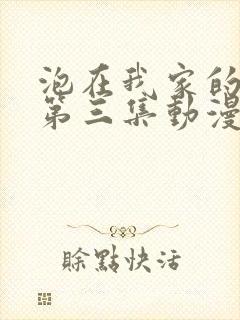 泡在我家的
第三集動漫
賒點快活